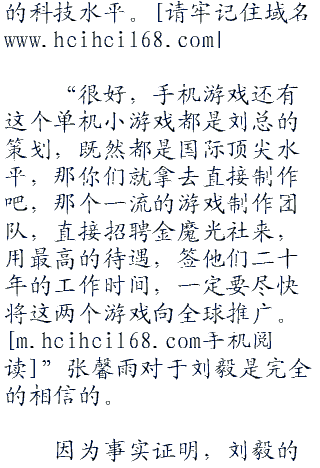 的科技水平。[请牢记住域名
www.hcihci168.com|
“很好，手机游戏还有
这个单机小游戏都是刘总的
策划，既然都是国际顶尖水
平，那你们就拿去直接制作
吧，那个一流的游戏制作团
队，直接招聘金魔光社来，
用最高的待遇，签他们二十
年的工作时间，一定要尽快
将这两个游戏向全球推广。
[m.hcihci168.com手机阅
读]”张馨雨对于刘毅是完全
的相信的。
因为事实证明，刘毅的